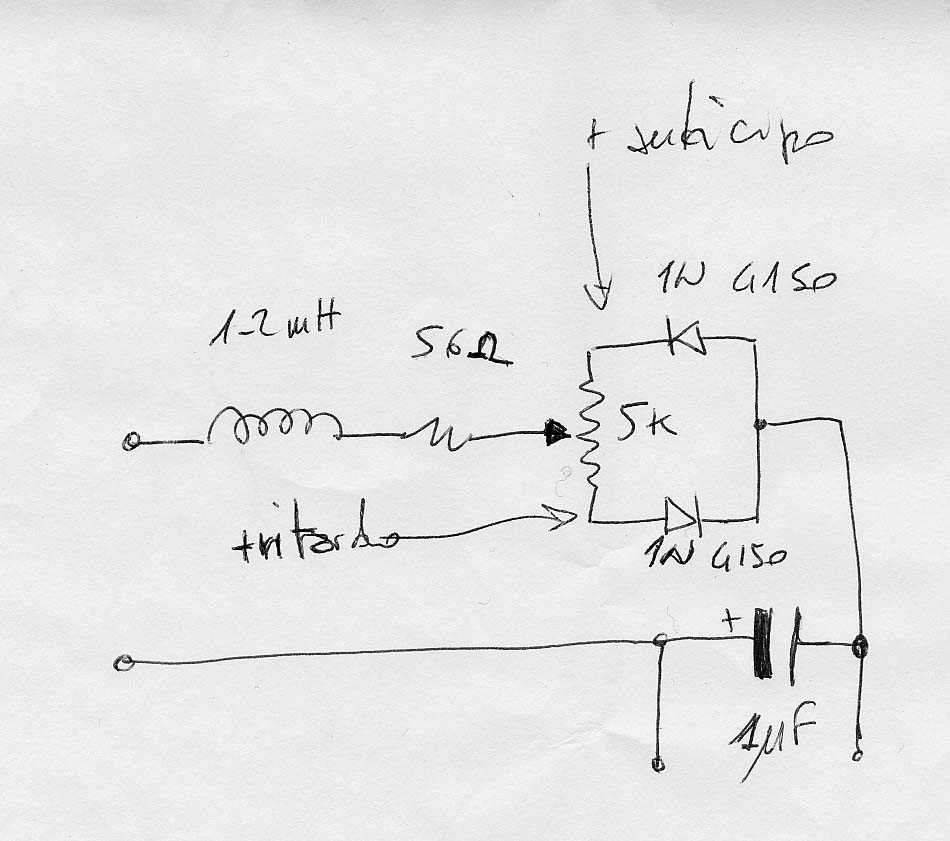 + anticipo
1N 4150
1-2 mH
56Ω
5K
+ ritardo
1N 4150
+
1µF